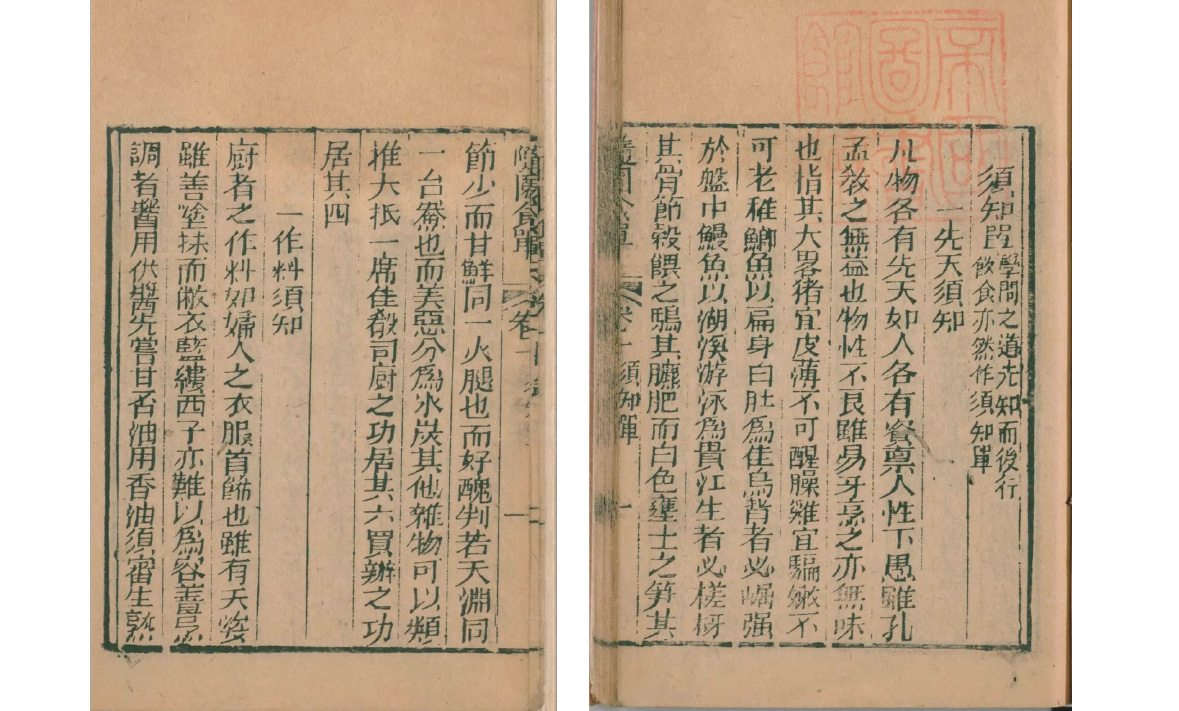 帝國圖書館藏
須知單
學問之道先知而後行
飲食亦然作須知單
一先天須知
凡物各有先天如人各有資禀人性下愚雖孔
孟敎之無益也物性不良雖易牙烹之亦無味
也指其大畧猪宜皮薄不可醒臊雞宜騸嫩不
可老稚鯽魚以扁身白肚爲佳烏背者必崛强
於盤中鰻魚以湖溪游泳爲貴江生者必槎枒
其骨節穀餵之鴨其臕肥而白色壅土之笋其
隨園食單 卷一 須知單 一
隨園食單 卷一
節少而甘鮮同一火腿也而好醜判若天淵同
一台鯗也而美惡分爲氷炭其他雜物可以類
推大抵一席佳殽司厨之功居其六買辦之功
居其四
一作料須知
厨者之作料如婦人之衣服首飾也雖有天姿
雖善塗抹而敝衣藍縷西子亦難以爲容善烹
調者醬用供醬先嘗甘否油用香油須審生熟